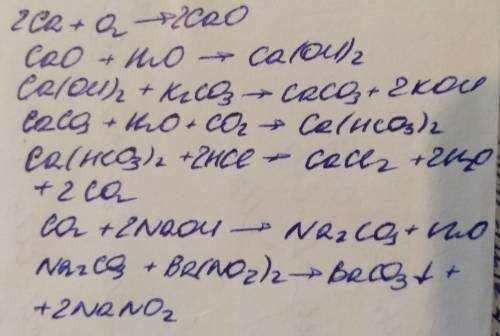 2Ca + O₂ → 2CaO
CaO + H₂O → Ca(OH)₂
Ca(OH)₂ + K₂CO₃ → CaCO₃ + 2KOH
CaCO₃ + H₂O + CO₂ → Ca(HCO₃)₂
Ca(HCO₃)₂ + 2HCl → CaCl₂ + 2H₂O
+ 2CO₂
CO₂ + 2NaOH → Na₂CO₃ + H₂O
Na₂CO₃ + Ba(NO₂)₂ → BaCO₃↓ +
+ 2NaNO₂